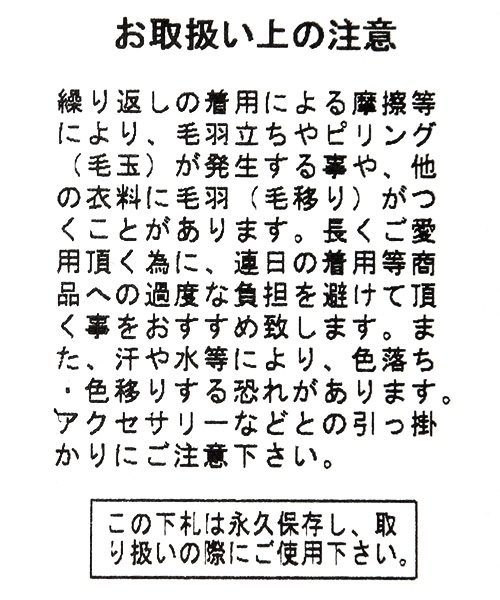 お取扱い上の注意
繰り返しの着用による摩擦等
により、毛羽立ちやピリング
（毛玉）が発生する事や、他
の衣料に毛羽（毛移り）がつ
くことがあります。長くご愛
用頂く為に、連日の着用等商
品への過度な負担を避けて頂
く事をおすすめ致します。ま
た、汗や水等により、色落ち
・色移りする恐れがあります。
アクセサリーなどとの引っ掛
かりにご注意下さい。
この下札は永久保存し、取
り扱いの際にご使用下さい。